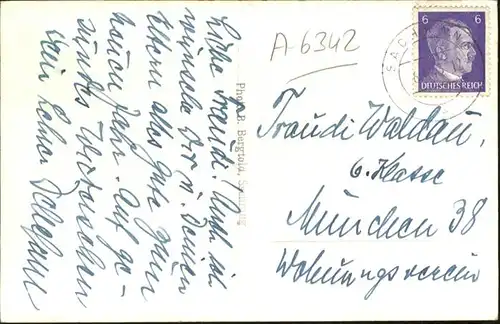 Liebe Traudi! Auch ich
wünsche Dir u. Deinen
Eltern alles gute zum
neuen Jahr. Auf ge-
sundes Wiedersehen
Dein Lehrer
Phot. B. Bergtold,
A-6342
6 6
DEUTSCHES REICH
Traudi Waldau,
6. Klasse
München 38
Wohnungsverein